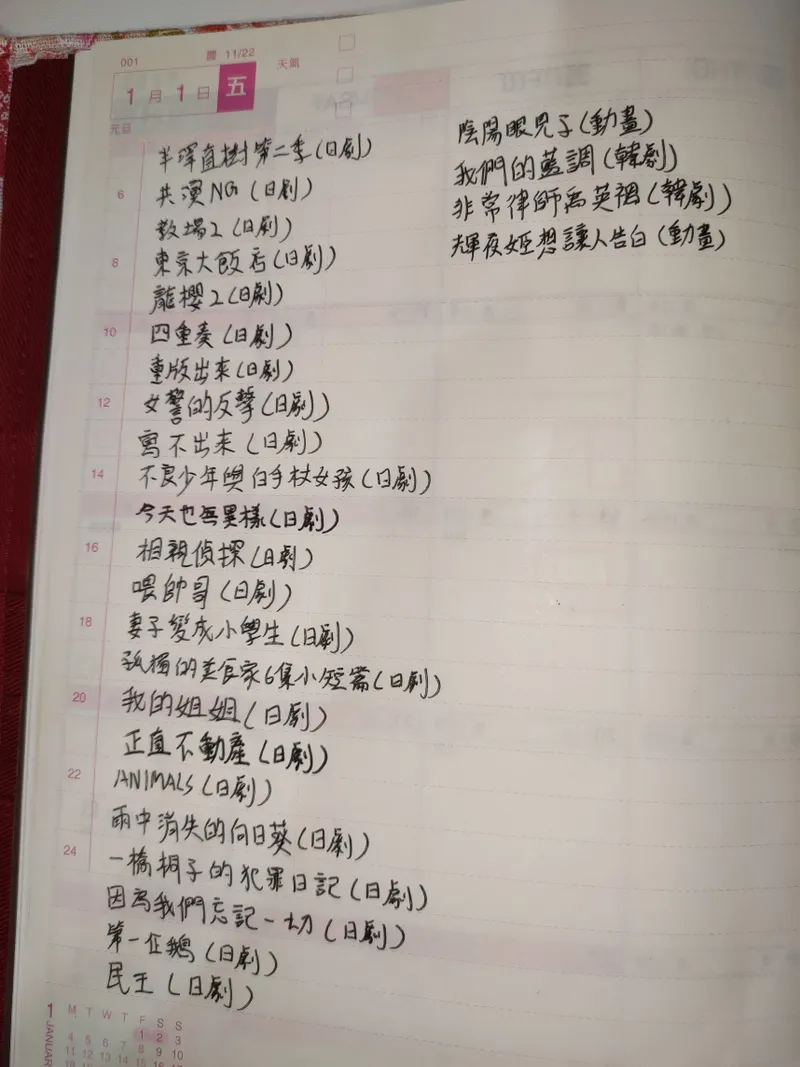 001
農 11/22
天氣
1月1日 五
元旦
半澤直樹第二季(日劇)
6 共演NG(日劇)
教場2(日劇)
8 東京大飯店(日劇)
龍櫻2(日劇)
10 四重奏(日劇)
重版出來(日劇)
12 女警的反擊(日劇)
寫不出來(日劇)
14 不良少年與白手杖女孩(日劇)
今天也無異樣(日劇)
16 相親偵探(日劇)
喂帥哥(日劇)
18 妻子變成小學生(日劇)
孤獨的美食家6集小短篇(日劇)
20 我的姐姐(日劇)
正直不動產(日劇)
22 ANIMALS(日劇)
雨中消失的向日葵(日劇)
24 一橋桐子的犯罪日記(日劇)
因為我們忘記一切(日劇)
第一企鵝(日劇)
民王(日劇)
陰陽眼見子(動畫)
我們的藍調(韓劇)
非常律師禹英禑(韓劇)
輝夜姬想讓人告白(動畫)
1 JANUARY
M T W T F S S
1 2 3
4 5 6 7 8 9 10
11 12 13 14 15 16 17